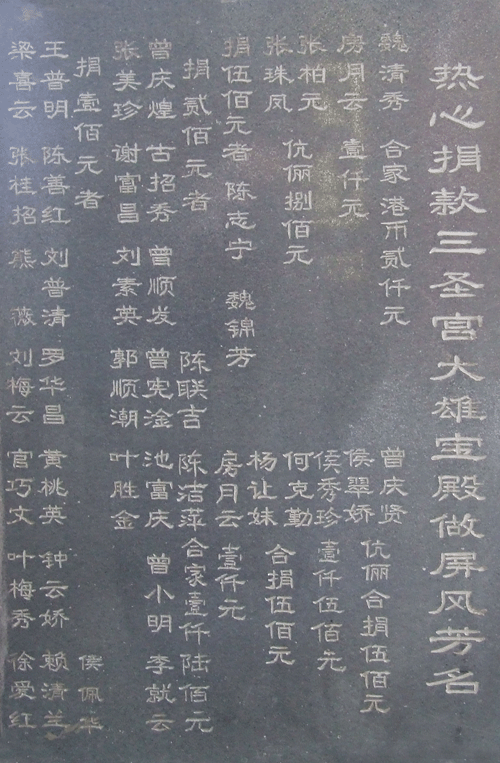 热心捐款三圣宫大雄宝殿做屏风芳名
魏清秀 合家港币贰仟元 曾庆贤
侯翠娇 伉俪合捐伍佰元
房月云 壹仟元 侯秀珍 壹仟伍佰元
张柏元 何克勤
张珠凤 伉俪捌佰元 杨让妹 合捐伍佰元
捐伍佰元者 陈志宁 魏锦芳 房月云 壹仟元
捐贰佰元者 陈联吉 陈洁萍 合家壹仟陆佰元
曾庆煌 古招秀 曾顺发 曾宪淦 池富庆 曾小明 李就云
张美珍 谢富昌 刘素英 郭顺潮 叶胜金
捐壹佰元者 侯佩华
王普明 陈善红 刘普清 罗华昌 黄桃英 钟云娇 赖清兰
梁喜云 张桂招 熊薇 刘梅云 官巧文 叶梅秀 徐爱红